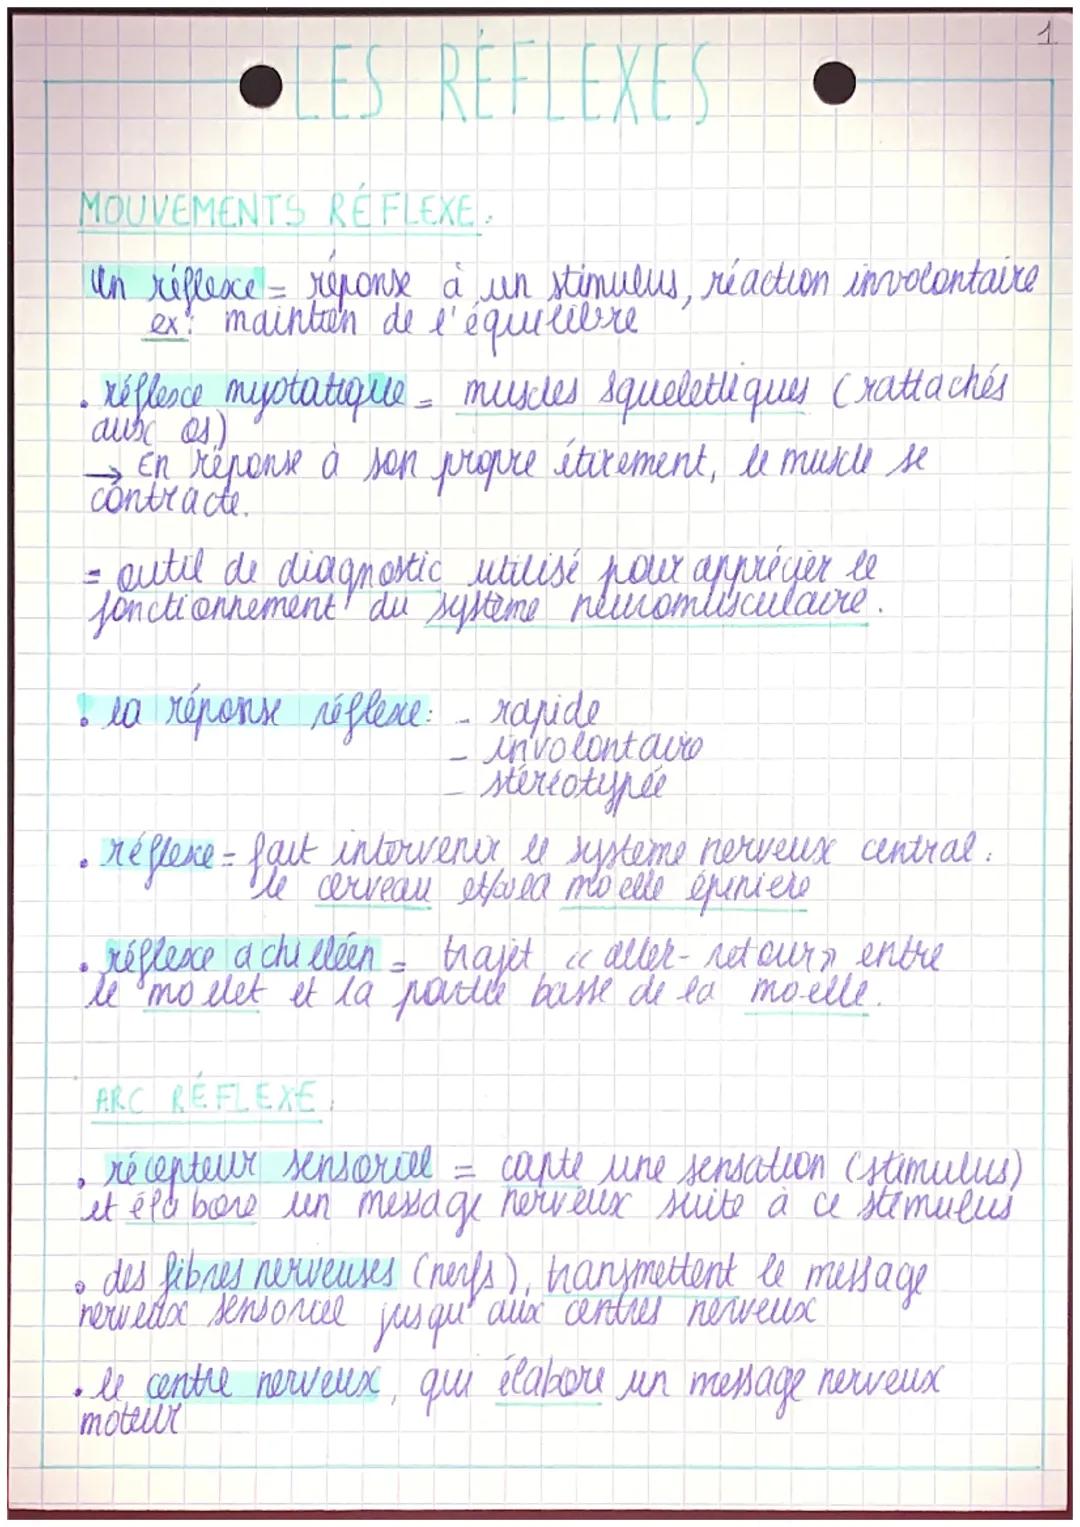 1
LES RÉFLEXES
MOUVEMENTS RÉFLEXE.
Un réflexe = réponse à un stimulus, réaction involontaire
ex: maintien de l'équilibre
• réflexe myotatique = muscles squelettiques (rattachés
aux os)
→ En réponse à son propre étirement, le muscle se
contracte.
= outil de diagnostic utilisé pour apprécier le
fonctionnement du système neuromusculaire.
• la réponse réflexe: - rapide
- involontaire
- stéréotypée
• réflexe = fait intervenir le système nerveux central:
le cerveau et/ou la moelle épinière
• réflexe achilléen = trajet « aller-retour » entre
le mollet et la partie basse de la moelle.
ARC RÉFLEXE.
• récepteur sensoriel = capte une sensation (stimulus)
et élabore un message nerveux suite à ce stimulus
• des fibres nerveuses (nerfs), transmettent le message
nerveux sensoriel jusqu'aux centres nerveux
• le centre nerveux, qui élabore un message nerveux
moteur